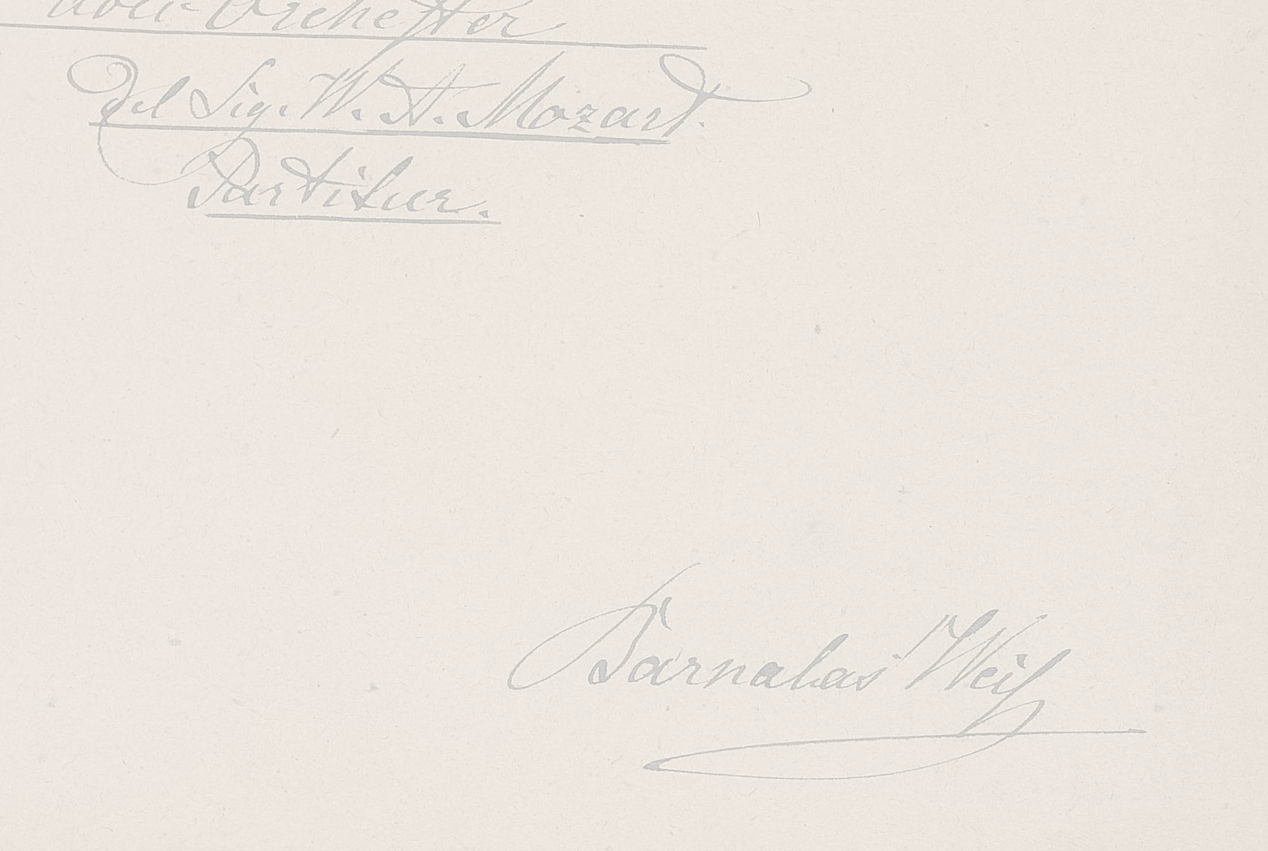 Orchester
del Sig. W. A. Mozart.
Partitur.
Barnabas Weiß